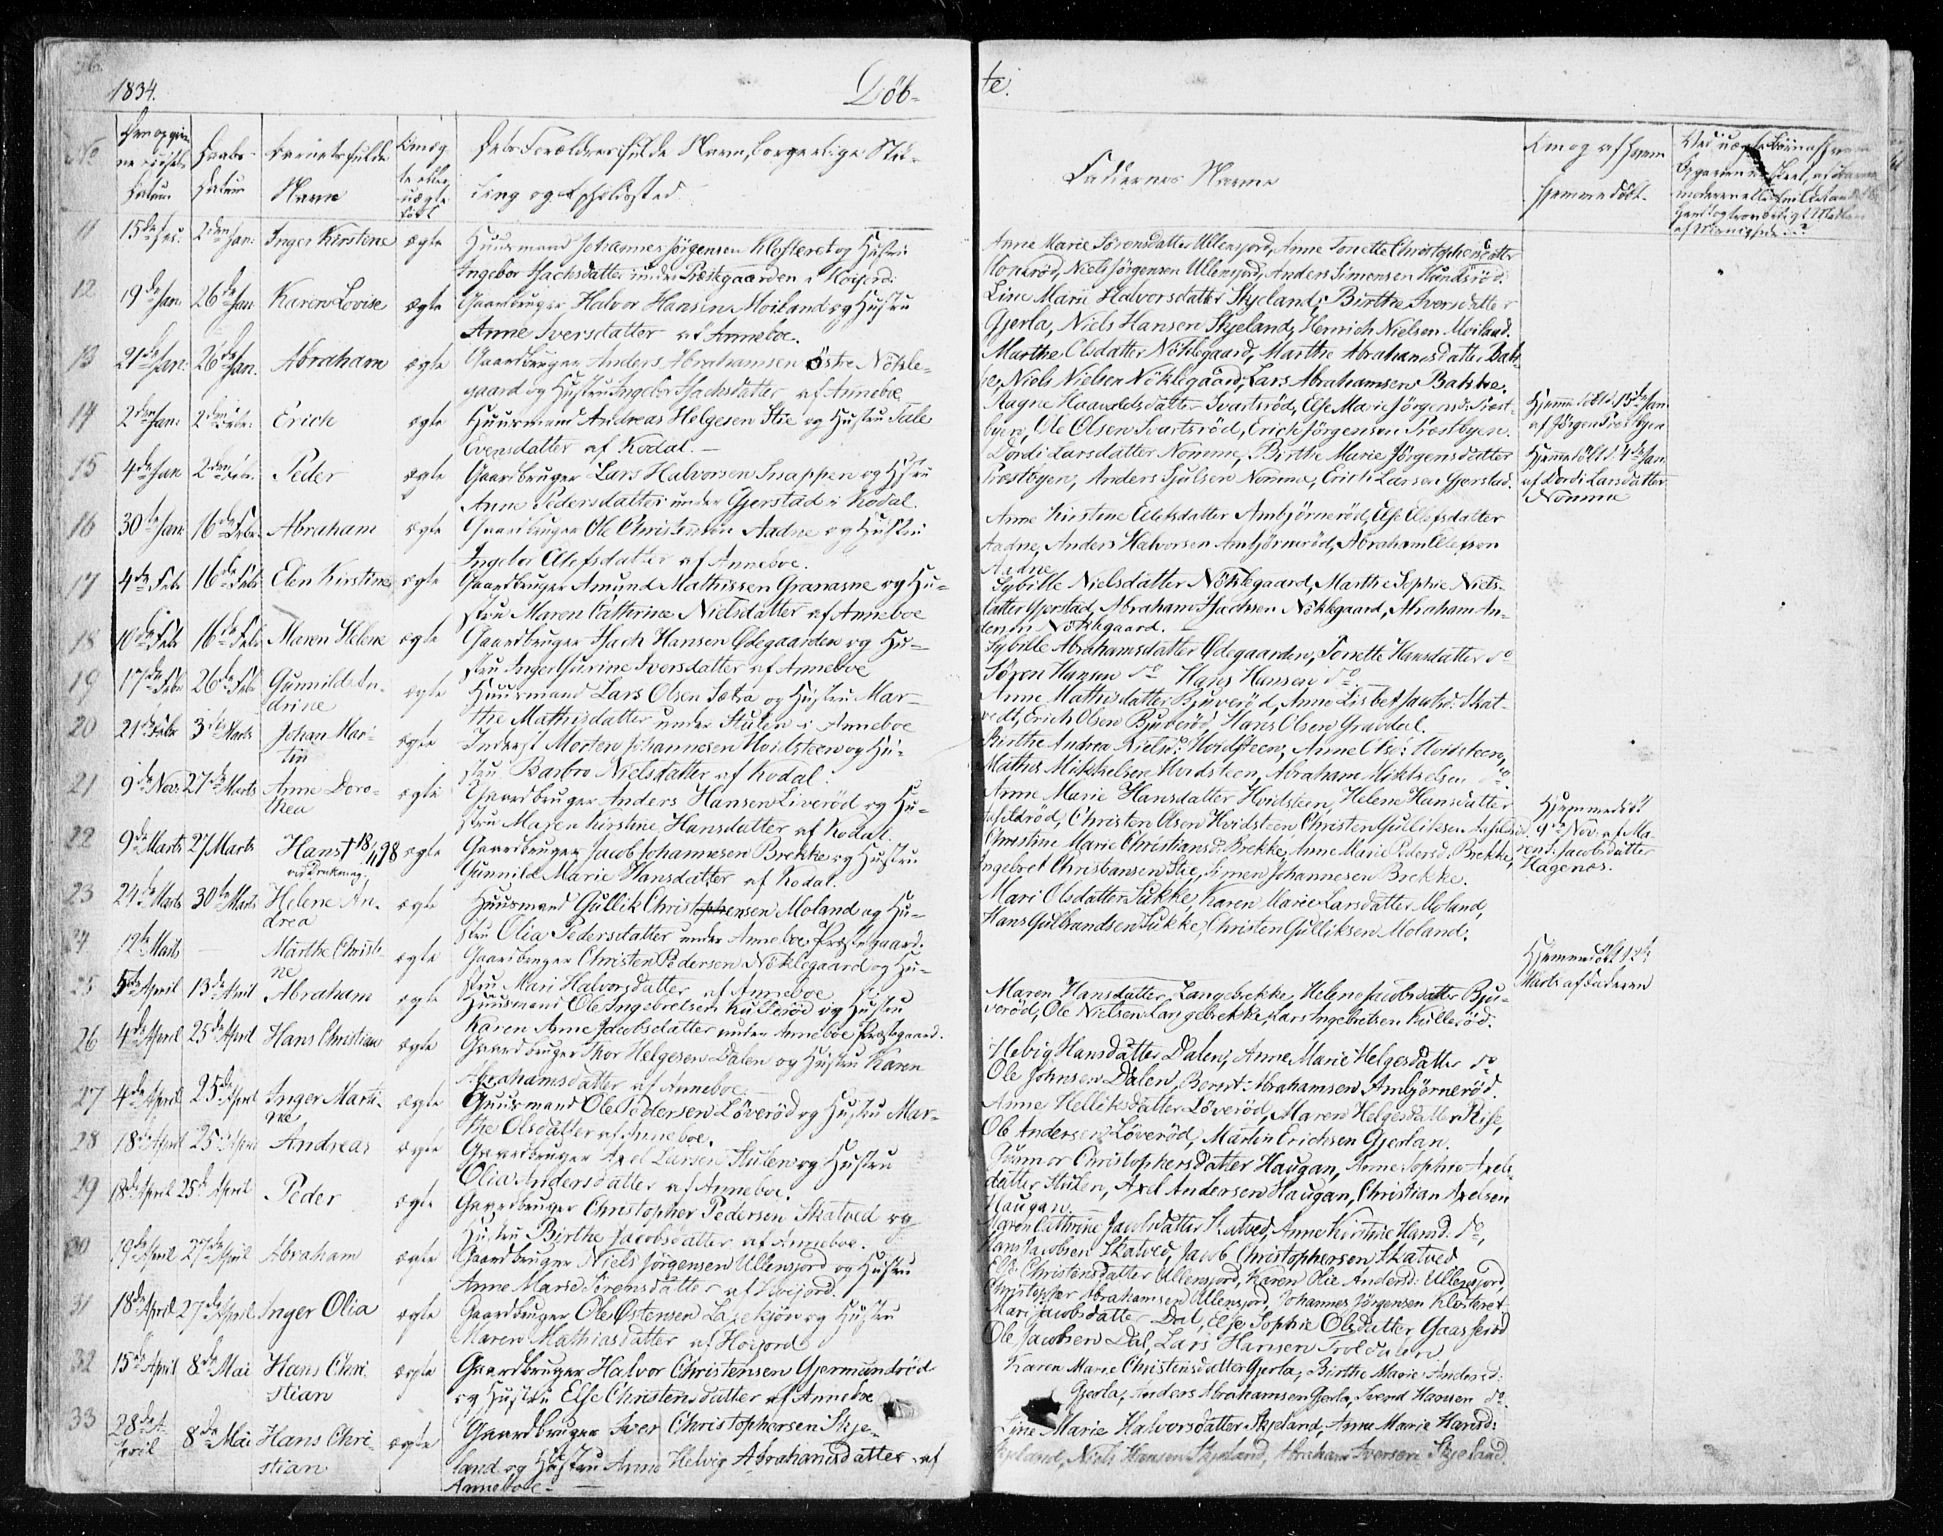 1834.
Døb-
te.
No
Barnets fulde
Navn
Faddernes Navne
11 15de Jan. 2den Jan. Inger Kirstine ægte Huusmand Johannes Jørgensen Klosteret og Hustru
Ingebor Isachsdatter under Præstgaarden i Høijord.
Anne Marie Sørensdatter Ullensjord, Anne Tonette Christophersdatter
Niels Jørgensen Ullensjord, Anders Simensen
12 19de Jan. 26de Jan. Karen Lovise ægte Gaardbruger Halvor Hansen Moiland og Hustru
Anne Iversdatter af Anneboe.
Line Marie Halvorsdatter Skjeland, Birthe Iversdatter
Gjerla, Niels Hansen Skjeland, Henrich Nielsen Moiland.
13 21de Jan. 26de Jan. Abraham ægte Gaardbruger Anders Abrahamsen Østre Nøkle-
gaard og Hustru Ingebor Isachsdatter af Anneboe
Marthe Olsdatter Nøklegaard, Marthe Abrahamsdatter Bak-
ke, Niels Nielsen Nøklegaard, Lars Abrahamsen Bakke.
14 2den Jan. 2den Febr. Erich ægte Huusmand Andreas Helgesen Stie og Hustru
Evensdatter af Kodal.
Aagne Haavaldsdatter Svartsrød, Else Marie Jørgensd: Præst-
byen, Ole Olsen Svartsrød, Erich Jørgensen Præstbyen.
Hjemmedøbt d. 15de Jan.
af Jørgen Præstbyen
15 4de Jan. 2den Febr. Peder ægte Gaardbruger Lars Halvorsen Snappen og Hustru
Anne Pedersdatter under Gjerstad i Kodal.
Dordi Larsdatter Nomme, Birthe Marie Jørgensdatter
Præstbyen, Anders Nomme, Erich Larsen Gjerstad.
af Dordi Larsdatter
Nomme
16 30te Jan. 16de Febr. Abraham ægte Gaardbruger Ole Christensen Aadne og Hustru
Ingebor Olefsdatter af Anneboe.
Anne Kirstine Olefsdatter Ambjørnerød, Else Olefsdatter
Aadne, Anders Halvorsen Ambjørnerød, Abraham
Aadne
17 4de Febr. 16de Febr. Elen Kirstine ægte Gaardbruger Amund Mathissen Granaasne og Hu-
stru Maren Cathrine Nielsdatter af Anneboe
Sybille Nielsdatter Nøklegaard, Marthe Sophie Niels-
datter Gjerstad, Abraham Isachsen Nøklegaard, Abraham An-
dersen Nøklegaard.
18 10de Febr. 16de Febr. Maren Helene ægte Gaardbruger Isach Hansen Ødegaarden og Hu-
stru Inger Gurine Iversdatter af Anneboe
Sybille Abrahamsdatter Ødegaarden, Tonette Hansdatter do
Søren Hansen do Hans Hansen do
19 17de Febr. 26de Febr. Gunnild An-
drine ægte Huusmand Lars Olsen Sætra og Hustru Mar-
the Mathisdatter under Stulen i Anneboe
Anne Mathisdatter Bjuerød, Anne Lisbet Jacobsd: Skat-
vedt, Erich Olsen Bjuerød, Hans Olsen Gravdal.
20 21de Febr. 3de Marts Johan Mar-
tin ægte Inderst Morten Johannesen Hvidsteen og Hu-
stru Barbro Nielsdatter af Kodal.
Birthe Andrea Nielsd: Hvidsteen, Anne Olsd: Hvidsteen,
Mathis Mikkelsen Hvidsteen, Abraham Mikkelsen do
21 9de Nov. 27de Marts Anne Doro-
thea ægte Gaardbruger Anders Hansen Liverød og Hu-
stru Maren Kirstine Hansdatter af Kodal
Anne Marie Hansdatter Hvidsteen, Helene Hansdatter
Christen Olsen Hvidsteen Christen Gulliksen
Hjemmedøbt
9de Nov. af Ma-
ren Jacobsdatter
Hagenæs.
22 9de Marts 27 Marts Hans † 18/4 98
ved Drukning. ægte Gaardbruger Jacob Johannesen Brekke og Hustru
Gunnild Marie Hansdatter af Kodal.
Christine Marie Christiansd: Brekke, Anne Marie Pedersd: Brekke,
Ingebret Christiansen Stie, Simen Johannesen Brekke.
23 24de Marts 30te Marts Helene An-
drea ægte Huusmand Gullik Christophensen Moland og Hu-
stru Olia Pedersdatter under Anneboe Præstegaard.
Mari Olsdatter Sukke, Karen Marie Larsdatter Moland,
Hans Gulbrandsen Sukke, Christen Gulliksen Moland.
24 12te Marts — Marthe Christi-
ne ægte Gaardbruger Christen Pedersen Nøklegaard og Hu-
stru Mari Halvorsdatter af Anneboe
Hjemmedøbt 12te
Marts af Faderen
25 5de April 13de April Abraham ægte Huusmand Ole Ingebretsen Kullerød og Hustru
Karen Anne Jacobsdatter under Anneboe Præstegaard.
Maren Hansdatter Langebrekke, Helene Jacobsdatter Bju-
erød, Ole Nielsen Langebrekke, Lars Ingebretsen Kullerød.
26 4de April 25de April Hans Christian ægte Gaardbruger Thor Helgesen Dalen og Hustru Karen
Abrahamsdatter af Anneboe
Hebig Hansdatter Dalen, Anne Marie Helgesdatter do
Ole Johnsen Dalen, Bernt Abrahamsen Ambjørnerød.
27 4de April 25de April Inger Marti-
ne ægte Huusmand Ole Pedersen Løverød og Hustru Mar-
the Olsdatter af Anneboe.
Anne Helliksdatter Løverød, Maren Helgesdatter Rise,
Ole Andersen Løverød, Martin Erichsen Gjerlan.
28 18de April 25de April Andreas ægte Gaardbruger Axel Larsen Stulen og Hustru
Olia Andersdatter af Anneboe.
Gunnor Christophersdatter Haugan, Anne Sophie Axels-
datter Stulen, Axel Andersen Haugan, Christian Axelsen
Haugan.
29 18de April 25de April Peder ægte Gaardbruger Christopher Pedersen Skatved og
Hustru Birthe Jacobsdatter af Anneboe.
Maren Cathrine Jacobsdatter Skatved, Anne Kirstine Hansd. do,
Hans Jacobsen Skatved, Jacob Christophersen Skatved
30 19de April 27de April Abraham ægte Gaardbruger Niels Jørgensen Ullensjord og Hustru
Anne Marie Sørensdatter af Høijord.
Else Christensdatter Ullensjord, Karen Olie Andersd: Ullensjord,
Christopher Abrahamsen Ullensjord, Johannes Jørgensen Klosteret
31 18de April 27de April Inger Olia ægte Gaardbruger Ole Østensen Laxekjøn og Hustru
Maren Mathiasdatter af Høijord
Mari Jacobsdatter Dal, Else Sophie Olsdatter Gaasserød
Ole Jacobsen Dal, Lars Hansen Troldalen
32 15de April 8de Mai Hans Chri-
stian ægte Gaardbruger Halvor Christensen Gjermundsrød
og Hustru Else Christensdatter af Anneboe
Karen Marie Christensdatter Gjerla, Birthe Marie Andersd:
Gjerla, Anders Abrahamsen Gjerla, Svend Hansen do
33 28de A-
pril 8de Mai Hans Chri-
stian ægte Gaardbruger Iver Christophersen Skje-
land og Hustru Anne Helvig Abrahamsdatter af
Anneboe
Line Marie Halvorsdatter Skjeland, Anne Marie Hansd:
Skjeland, Niels Hansen Skjeland, Abraham Iversen Skjeland.